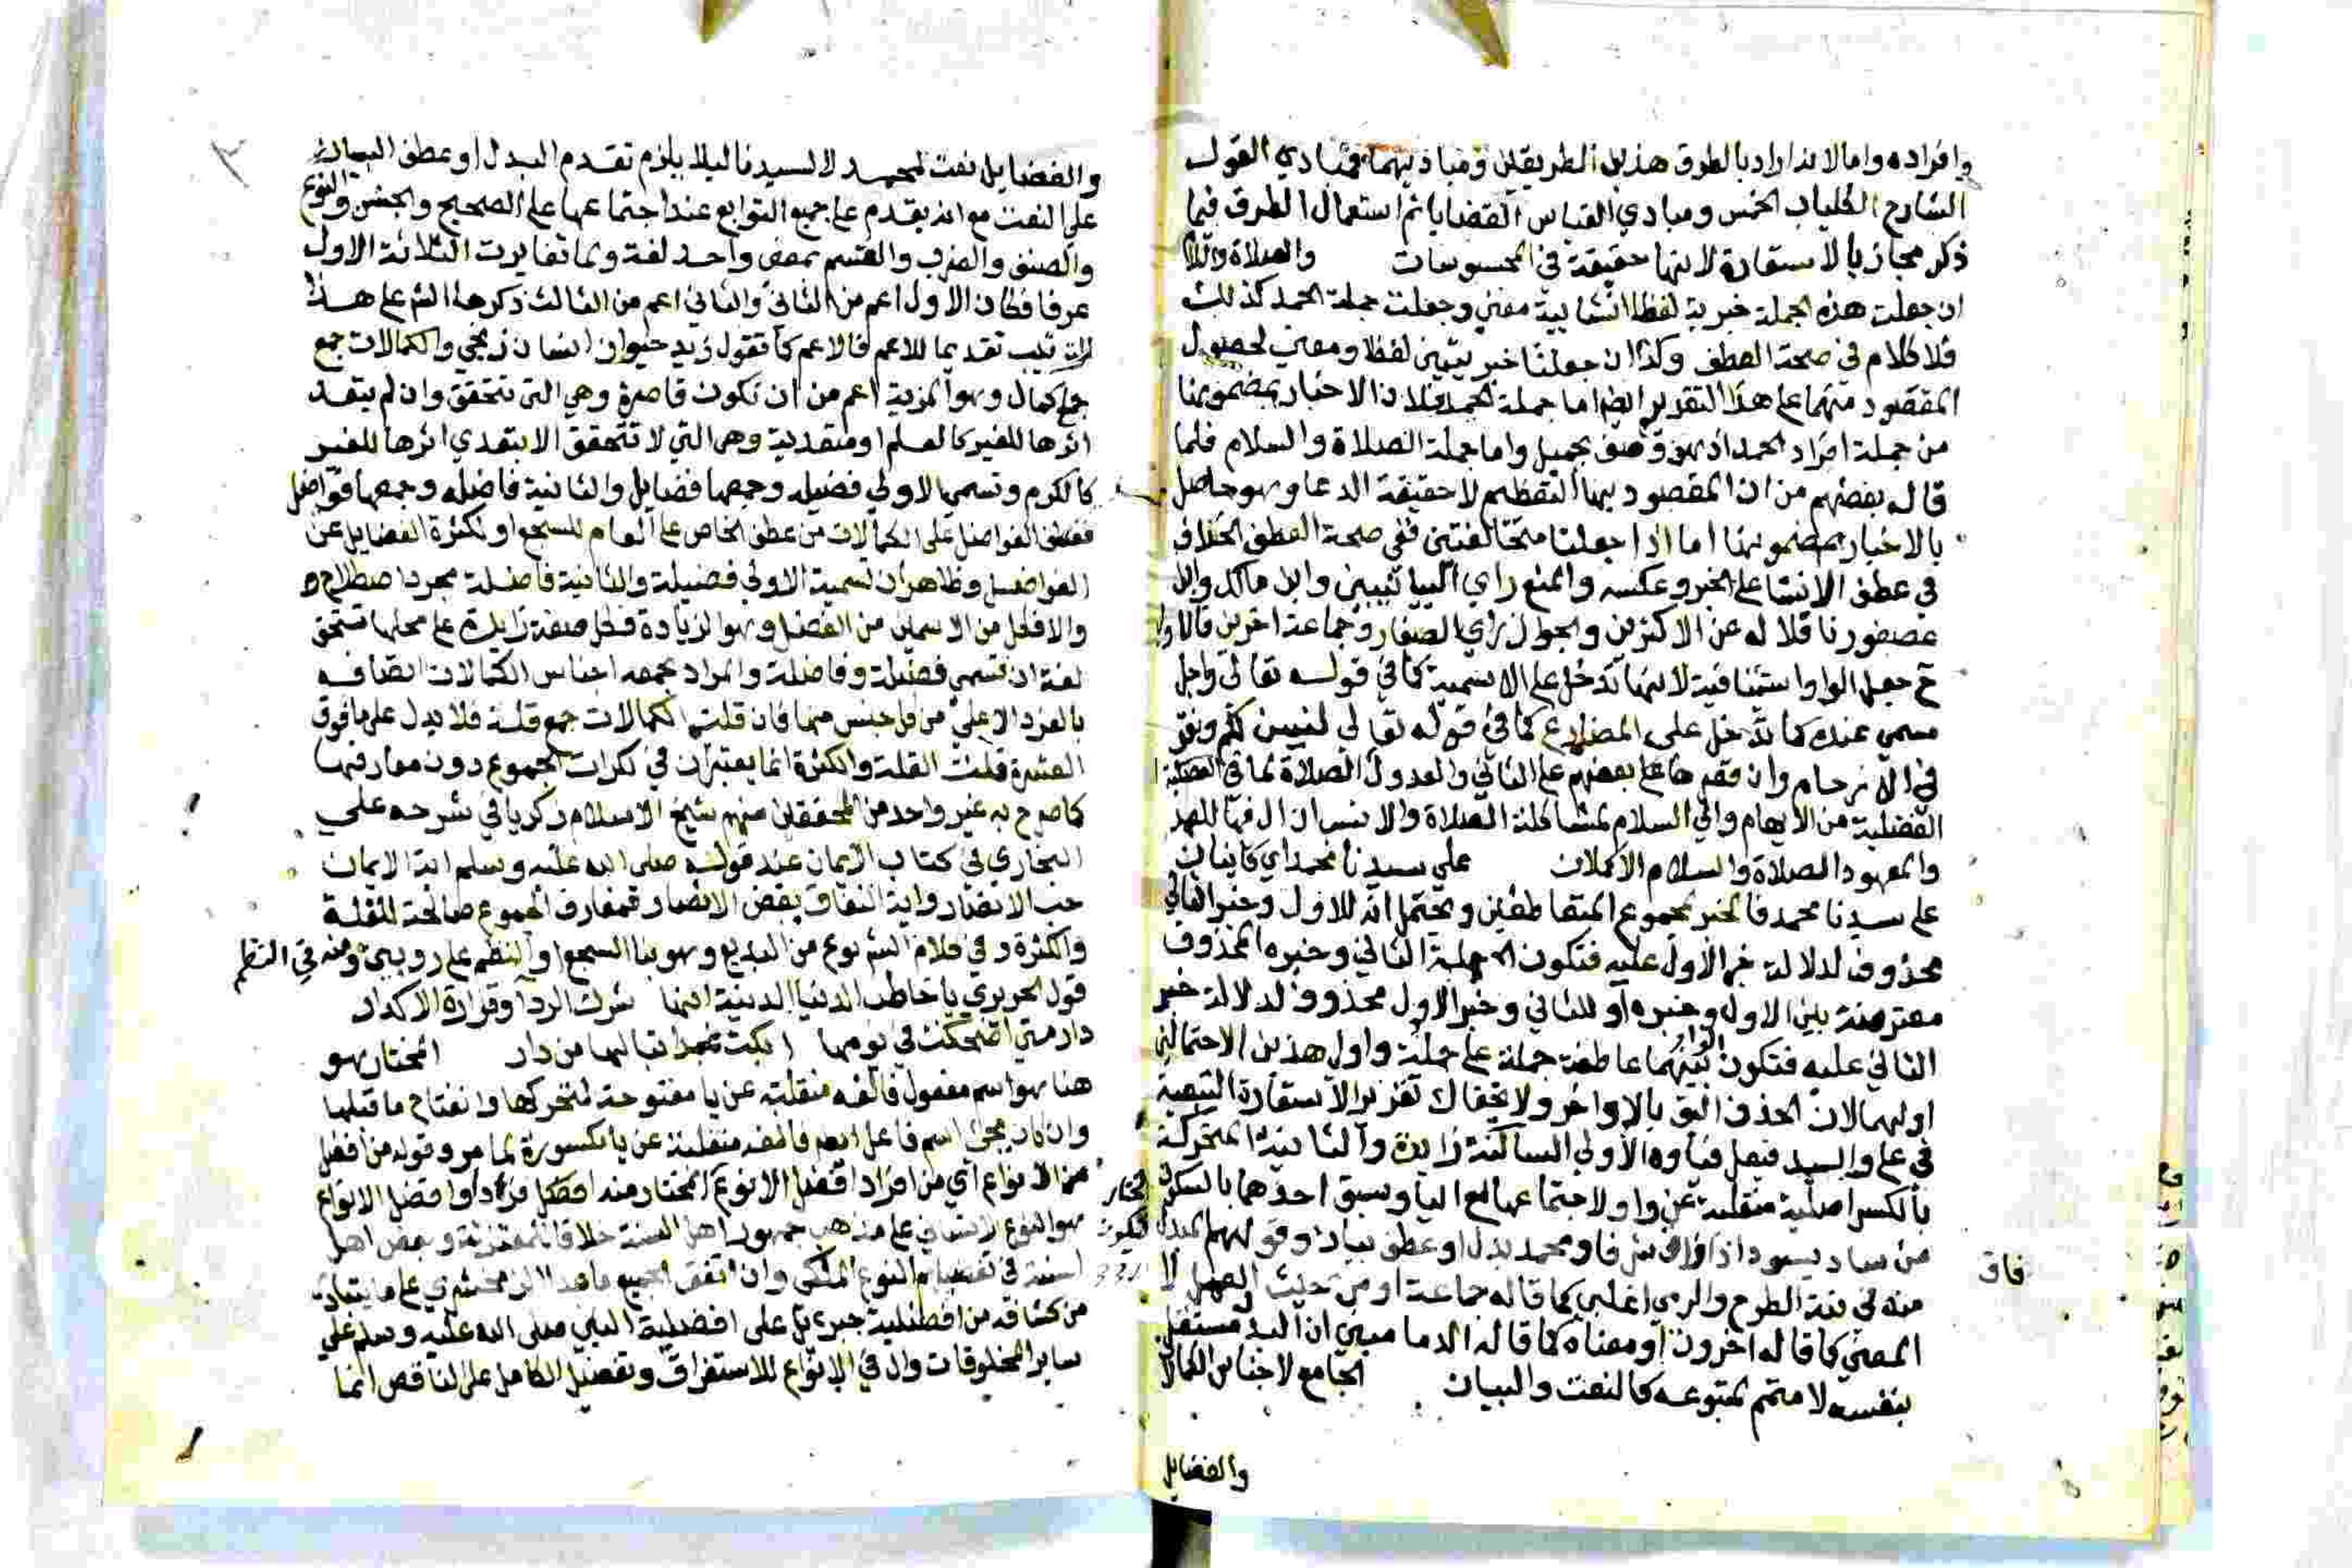 وافراده واما لانه اراد بالطرق هذين الطريقين ومباديهما فمبادي القول
الشارح الكليات الخمس ومبادي القياس القضايا ثم استعمال الطرق فيما
ذكر مجاز بالاستعارة لانها حقيقة في المحسوسات والصلاة والسلام
ان جعلت هذه الجملة خبرية لفظا انشايية معني وجعلت جملة الحمد كذلك
فلا كلام في صحة العطف وكذا ان جعلتا خبريتين لفظا ومعني لحصول
المقصود منهما على هذا التقرير ايضا اما جملة الحمد فلان الاخبار بمضمونها
من جملة افراد الحمد اذ هو وصف بجميل واما جملة الصلاة والسلام فلما
قاله بعضهم من ان المقصود بها التعظيم لا حقيقة الدعا وهو حاصل
بالاخبار بمضمونها اما اذا جعلتا متخالفتين ففي صحة العطف الخلاف
في عطف الانشا على الخبر وعكسه والمنع راي البيانيين وابن مالك وابن
عصفور نا قلا له عن الاكثرين والجواز راي الصفار وجماعة اخرين
ح جعل الواو استينافية لانها تدخل على الاسمية كما في قوله تعالى واجل
مسمي عنده كما تدخل على المضارع كما في قوله تعالي لنبين لكم ونقر
في الارحام وان قصرها بعضهم على الثاني والعدول الصلاة لما في
الفضلية من الايهام والي السلام لمشاكلة الصلاة وال فيهما للعهد
والمعهود الصلاة والسلام الاكملان علي سيدنا محمد اي كاينان
على سيدنا محمد فالخبر لمجموع المتعاطفين ويحتمل انه للاول وخبر الثاني
محذوف لدلالة خبر الاول عليه فتكون الجملة الثاني وخبره المحذوف
معترضة بين الاول وخبره او للثاني وخبر الاول محذوف لدلالة خبر
الثاني عليه فتكون الواو بينهما عاطفة جملة على جملة واول هذين الاحتمالين
اولهما لان الحذف اليق بالاواخر ولا يخفاك تقرير الاستعارة التبعية
في على والسيد فيعل فياوه الاولي الساكنة زايدة والثانية المتحركة
بالكسر اصلية منقلبة عن واو لاجتماعها مع اليا وسبق احدهما بالسكون
من ساد يسود اذا فاق شرفا ومحمد بدل او عطف بيان وقولهم المبدل
فاق
منه في نية الطرح والرمي اغلبي كما قاله جماعة او من حيث العمل لا
المعني كما قاله اخرون او معناه كما قاله الدماميني ان البدل مستقل
بنفسه لا متمم لمتبوعه كالنعت والبيان الجامع لاجناس الكمالات
والفضايل
والفضايل نعت لمحمد لا لسيدنا ليلا يلزم تقدم البدل او عطف البيان
على النعت مع انه يقدم على جميع التوابع عند اجتماعها على الصحيح والجنس والنوع
والصنف والضرب والقسم بمعنى واحد لغة وبما تغايرت الثلاثة الاول
عرفا فكان الاول اعم من الثاني والثاني اعم من الثالث ذكرها الش على هذا
الترتيب تقديما للاعم فالاعم كما تقول زيد حيوان انسان زنجي والكمالات جمع
جمع كمال وهو المزية اعم من ان تكون قاصرة وهي التي تتحقق وان لم يتعد
اثرها للغير كالعلم او متعدية وهي التي لا تتحقق الا بتعدي اثرها للغير
كالكرم وتسمي الاولي فضيلة وجمعها فضايل والثانية فاضلة وجمعها فواضل
فعطف الفواضل على الكمالات من عطف الخاص على العام للسجع او لكثرة الفضايل عن
الفواضل وظاهر ان تسمية الاولى فضيلة والثانية فاضلة مجرد اصطلاح
والا فكل من الاسمين من الفضل وهو الزيادة فكل صفة زايدة على محلها تستحق
لغة ان تسمي فضيلة وفاضلة والمراد بجمعه اجناس الكمالات اتصافه
بالفرد الاعلي من كل جنس منها فان قلت الكمالات جمع قلة فلا يدل على ما فوق
العشرة قلت القلة والكثرة انما يعتبران في نكرات الجموع دون معارفها
كما صرح به غير واحد من المحققين منهم شيخ الاسلام زكريا في شرحه على
البخاري في كتاب الايمان عند قوله صلى الله عليه وسلم اية الايمان
حب الانصار واية النفاق بغض الانصار فمعارف الجموع صالحة للقلة
والكثرة وفي كلام الش نوع من البديع وهو بنا السجع او النظم على رويين ومنه في النظم
قول الحريري يا خاطب الدنيا الدنية انها شرك الردا وقرارة الاكدار
دار متي اضحكت في يومها ابكت غدا تبا لها من دار المختار هو
هنا هو اسم مفعول فالفه منقلبة عن يا مفتوحة لتحركها وانفتاح ما قبلها
وان كان يجئ اسم فاعل ايضا فالفه منقلبة عن يا مكسورة لما مر وقوله من افضل
من الانواع اي من افراد افضل الانواع المختار منه افضل افراد وافضل الانواع
هو النوع الانساني على مذهب جمهور اهل السنة خلافا للمعتزلة وبعض اهل
السنة في تفضيلهم النوع الملكي وان اتفق الجميع ما عدا الزمخشري على ما يتبادر
من كشافه من افضلية جبريل على افضلية النبي صلى الله عليه وسلم علي
ساير المخلوقات وال في الانواع للاستغراق وتفضيل الكامل على الناقص انما